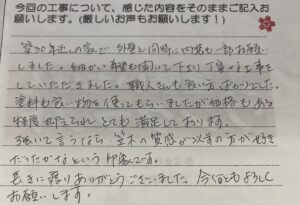 今回の工事について、感じた内容をそのままご記入お
願いします。(厳しいお声もお願いします!)
築30年近しの家で 外壁と同時に内装も一部お願い
しました。細かい希望も聞いて下さり 丁寧な工事を
していただきました。職人さんも良い方ばかりでした。
塗料も良い物を使ってもらいましたが価格もある
程度抑えられ とても満足しております。
強いて言うなら 笠木の質感が以前の方が好き
だったかなという印象です。
長きに渡りありがとうございました。今後ともよろしく
お願いします。